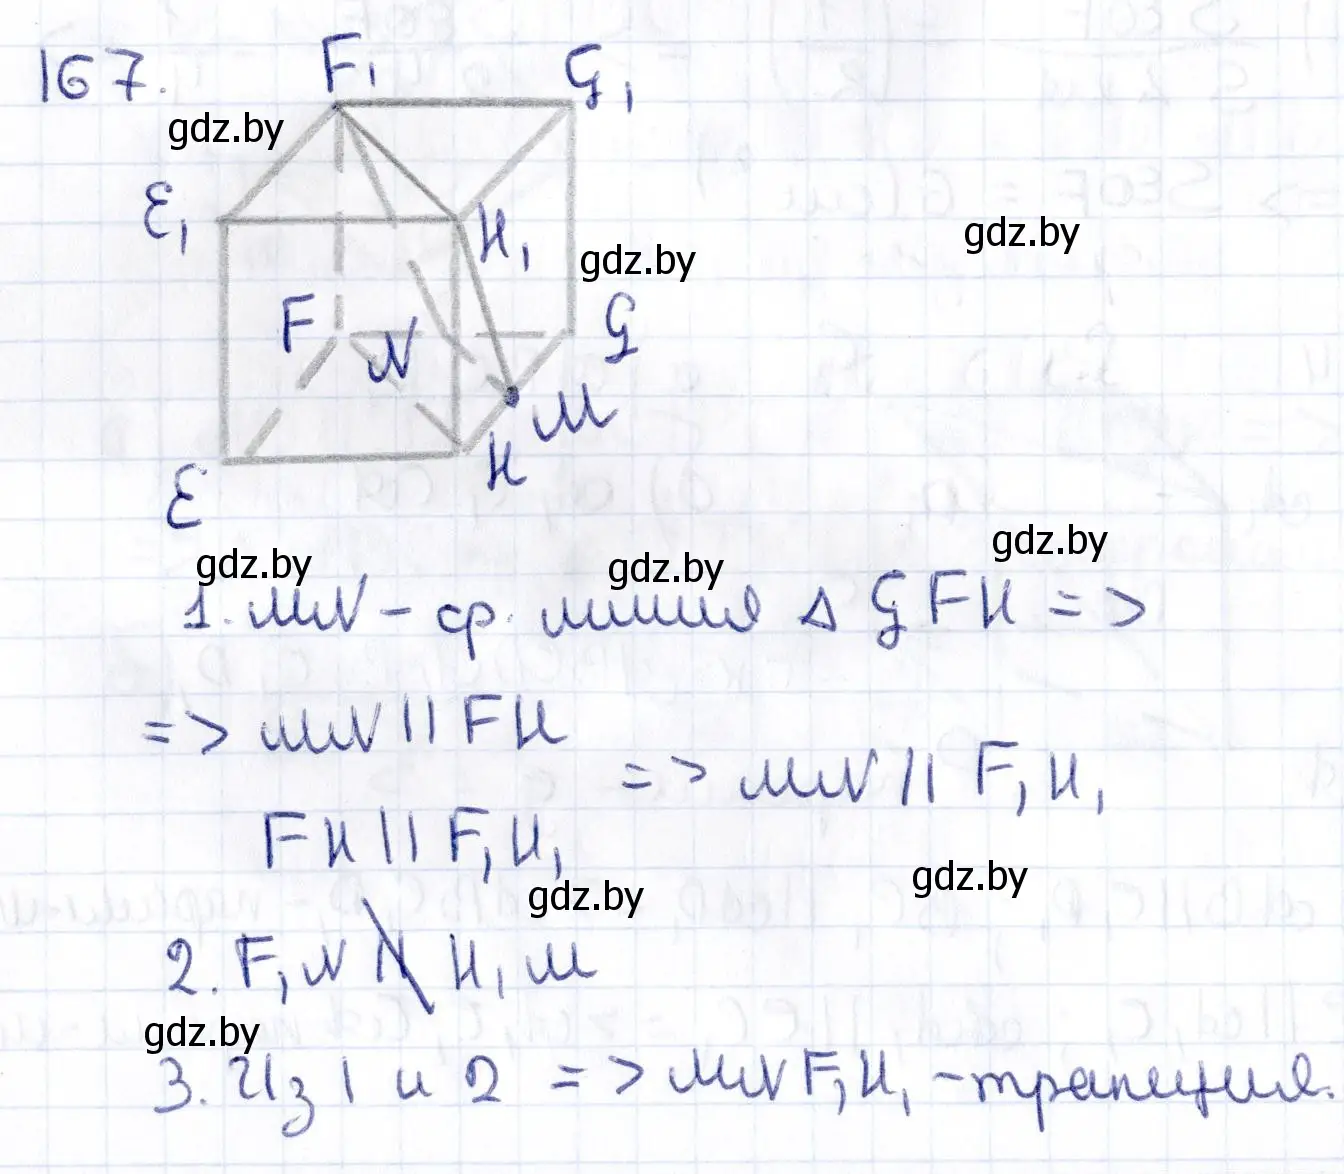 167.
F₁ G₁
gdz.by
E₁ H₁
gdz.by
gdz.by
F N G
M
H
E
gdz.by gdz.by gdz.by
1. MN – ср. линия Δ GFH =>
=> MN || FH
=> MN || F₁H₁
FH || F₁H₁
gdz.by gdz.by
2. F₁N ∦ H₁M
gdz.by
3. Из 1 и 2 => MNF₁H₁ – трапеция.